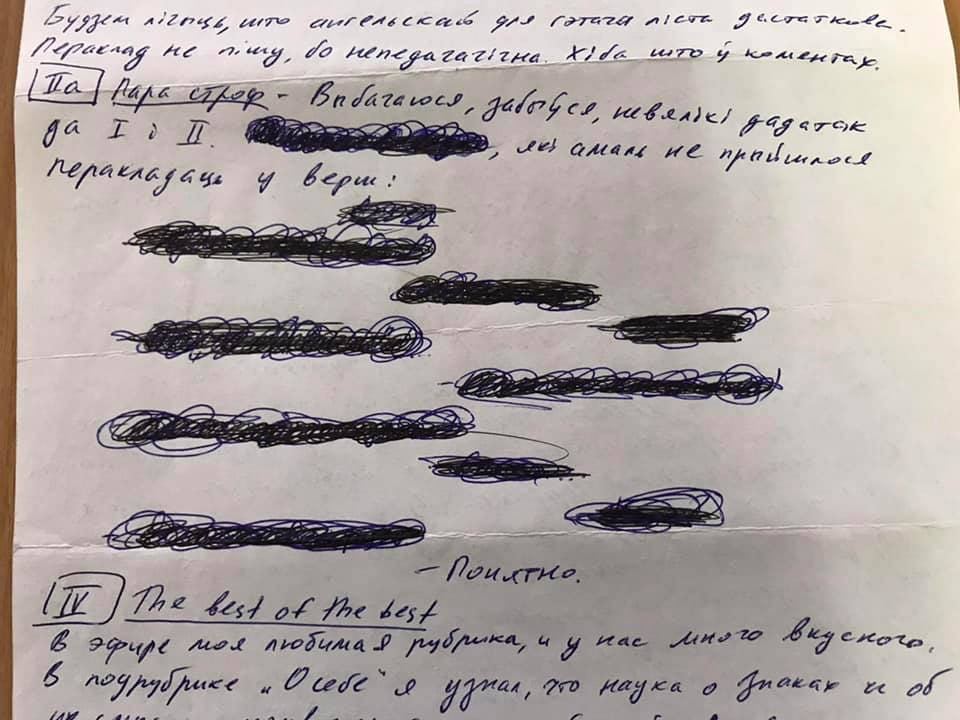 Будзем лічыць, што ангельскай для гэтага ліста дастаткова.
Пераклад не пішу, бо непедагагічна. Хіба што ў коментах.
IIa Пара строф - Выбачаюся, забыўся, невялікі дадатак
да I і II. , які амаль не прыйшлося
перакладаць у верш:
- Понятно.
IV The best of the best
В эфире моя любимая рубрика, и у нас много вкусного.
В подрубрике „О себе" я узнал, что наука о знаках и об